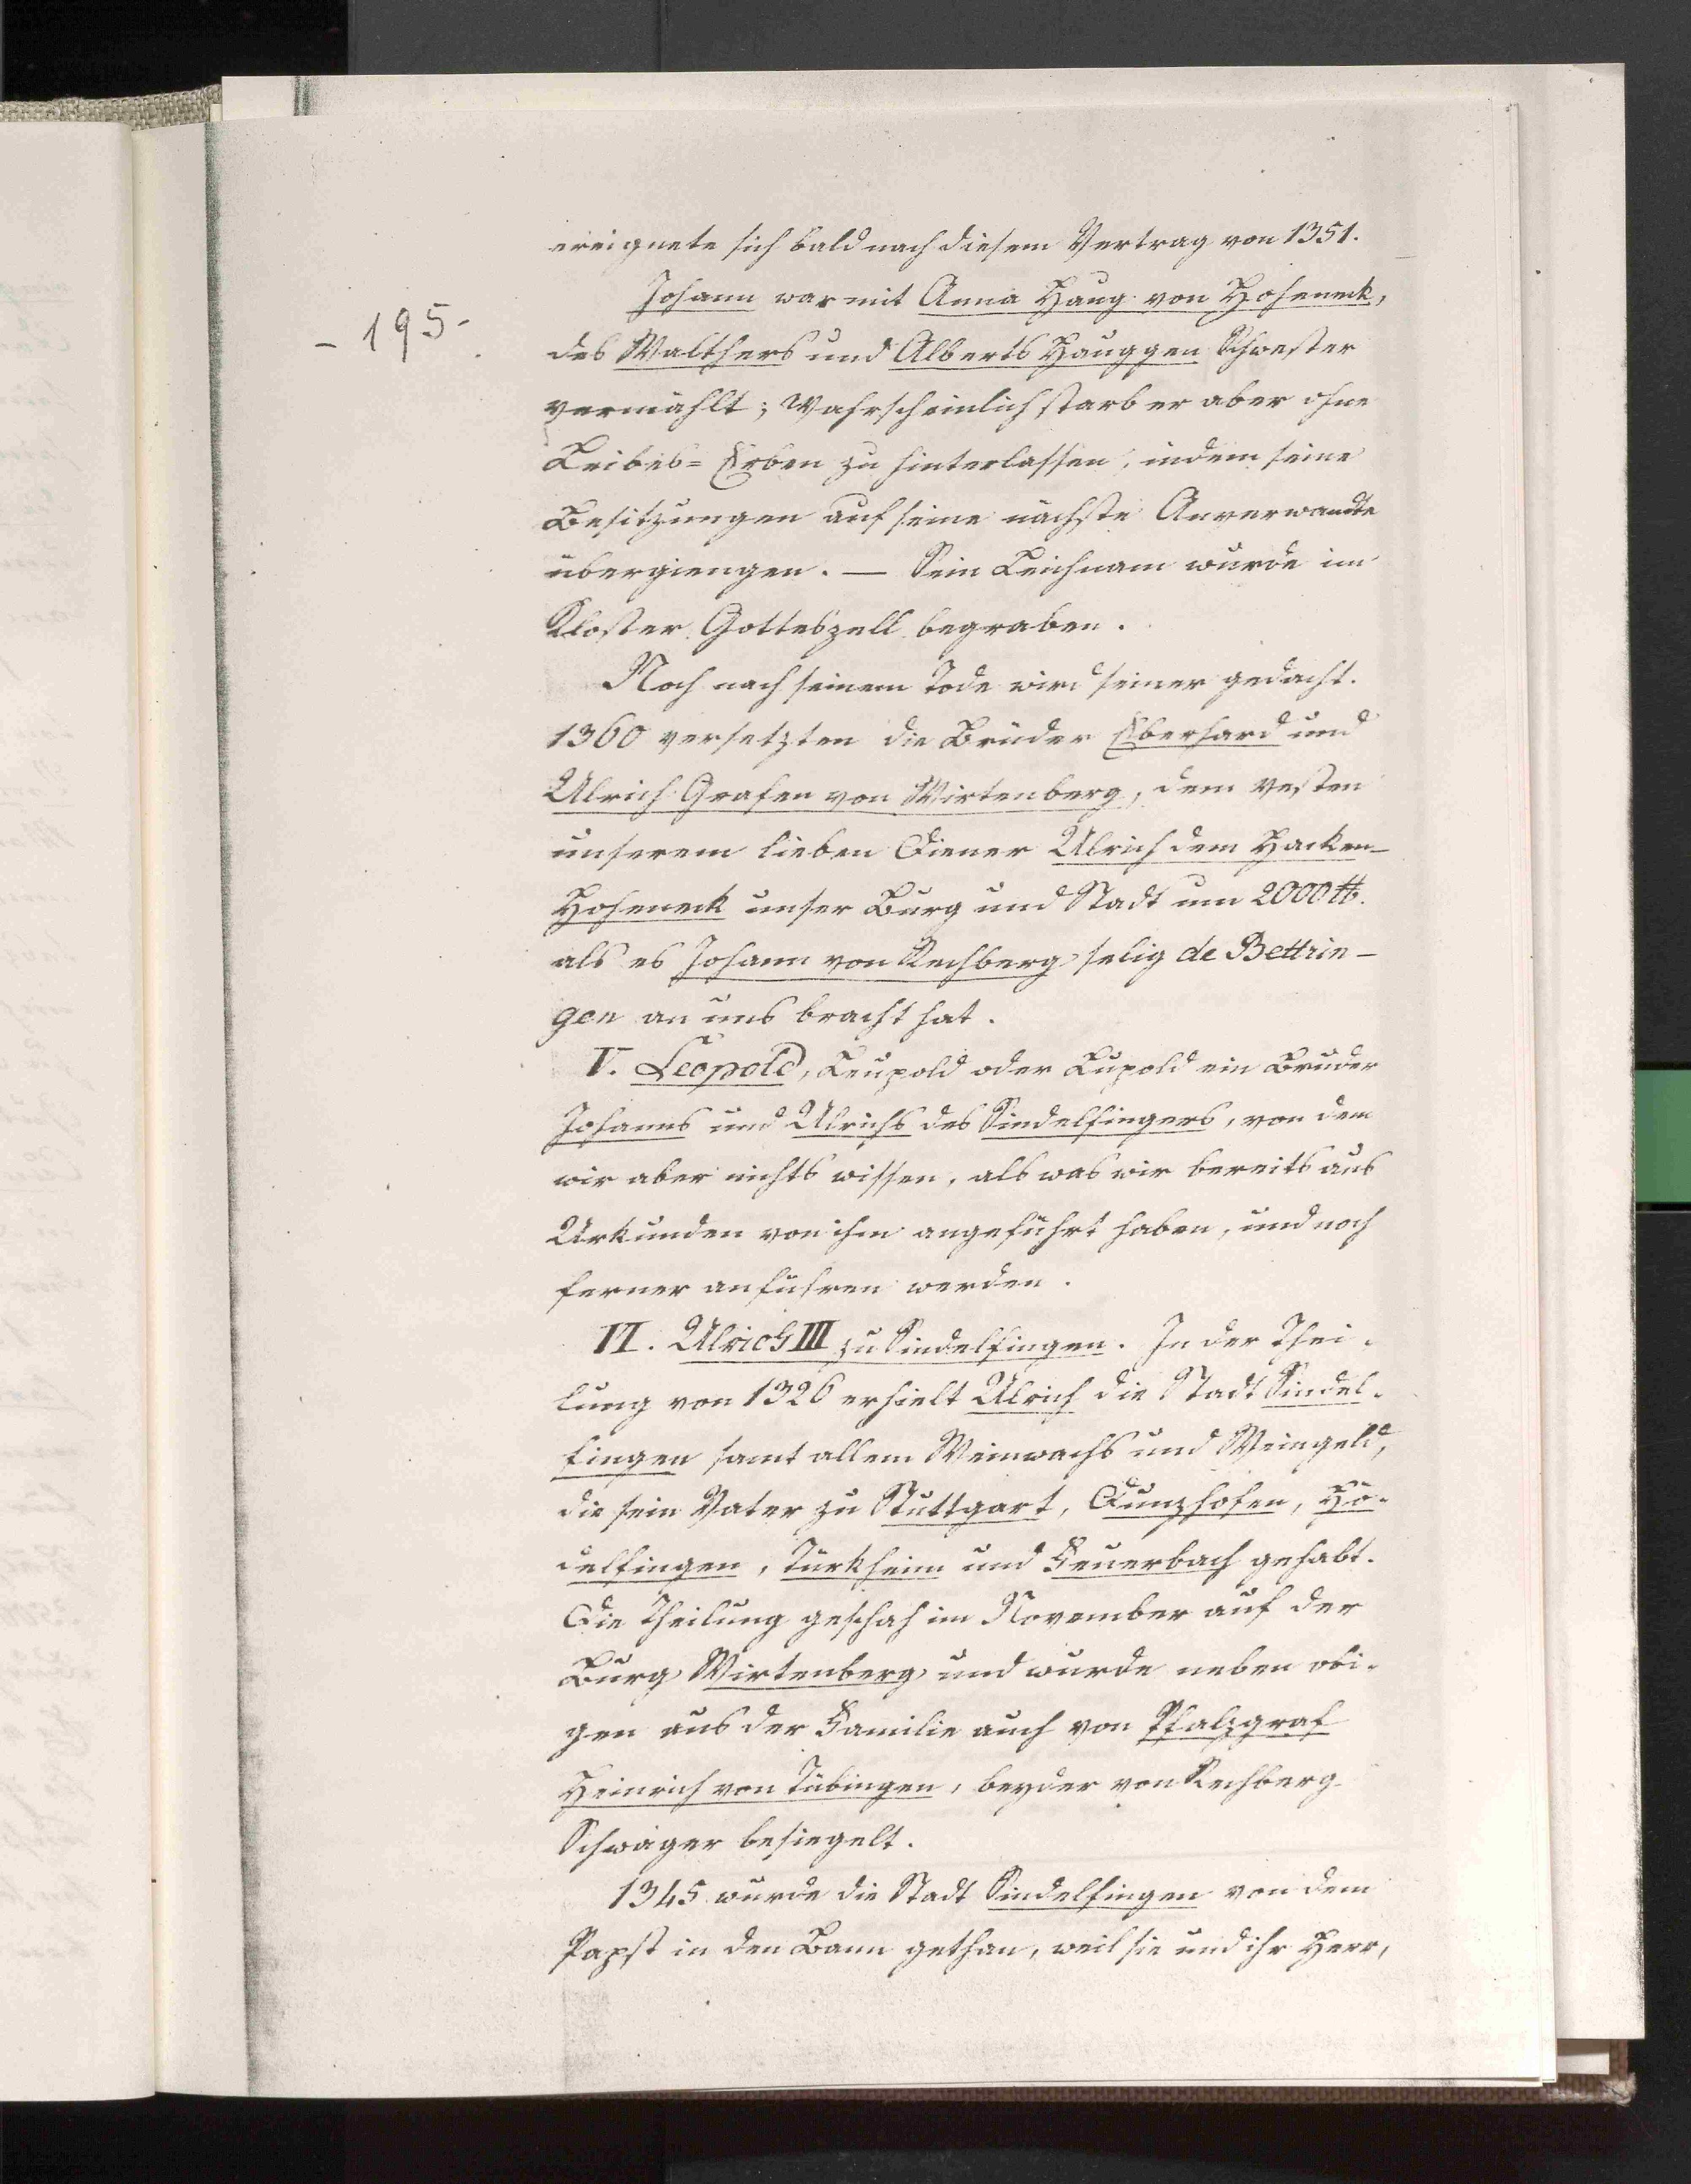 ereignete sich bald nach diesem Vertrag von 1351.
Johann war mit Anna Haug von Hoheneck,
- 195 -
des Walthers und Alberts Hauggen Schwester
vermählt; wahrscheinlich starb er aber ohne
Leibes= Erben zu hinterlassen, indem seine
Besitzungen auf seine nächste Anverwandte
übergiengen. — Sein Leichnam wurde im
Kloster Gotteszell begraben.
Noch nach seinem Tode wird seiner gedacht.
1360 versetzten die Brüder Eberhard und
Ulrich Grafen von Wirtenberg, dem vesten
unserem lieben Diener Ulrich dem Hacken-
Hoheneck unser Burg und Stadt um 2000 ℔.
als es Johann von Rechberg selig de Bettrin-
gen an uns bracht hat.
V. Leopold, Leupold oder Lupold ein Bruder
Johanns und Ulrichs des Sindelfingers, von dem
wir aber nichts wissen, als was wir bereits aus
Urkunden von ihm angeführt haben, und noch
ferner anführen werden.
VI. Ulrich III zu Sindelfingen. In der Thei-
lung von 1326 erhielt Ulrich die Stadt Sindel-
fingen samt allem Weinwachs und Weingeld,
die sein Vater zu Stuttgart, Dunzhofen, Hö-
delfingen, Türkheim und Feuerbach gehabt.
Die Theilung geschah im November auf der
Burg Wirtenberg und wurde neben obi-
gen aus der Familie auch von Pfalzgraf
Heinrich von Tübingen, beyder von Rechberg
Schwager besiegelt.
1345 wurde die Stadt Sindelfingen von dem
Papst in den Bann gethan, weil sie und ihr Herr,